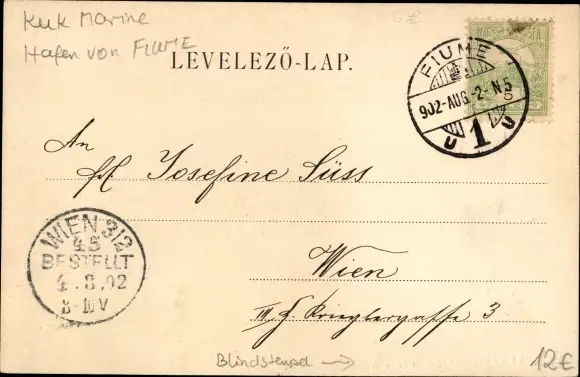 KuK Marine
Hafen von FIUME
LEVELEZŐ-LAP.
FIUME
902-AUG.-2-N5
1
U U
An
Frl. Josefine Süss
Wien
III. G. Krieglergasse 3
WIEN 3/2
45
BESTELLT
4.8.02
8-
Blindstempel →
12€